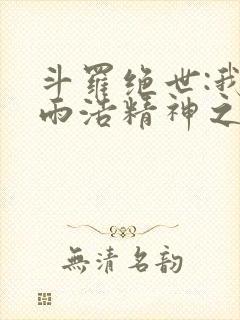 斗羅绝世:我
雨浩精神之
無清名韵